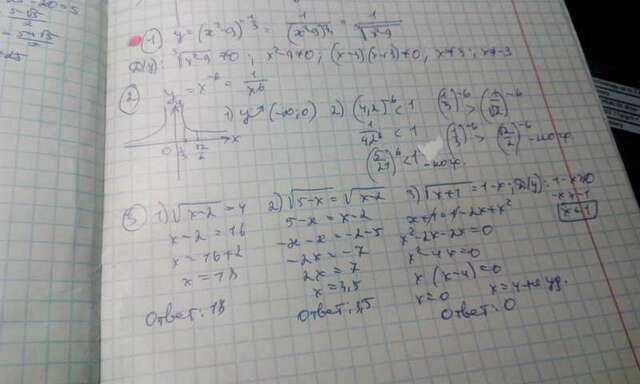 1 y = (x²-9)^(-1/3) = 1/(x²-9)^(1/3) = 1/∛(x²-9)
D(y): ∛(x²-9) ≠ 0; x²-9≠0; (x-3)(x+3)≠0, x≠3; x≠-3
2 y = x⁻⁶ = 1/x⁶
1) y (-∞; 0) 2) (4,2)⁻⁶ < 1 (1/3)⁻⁶ > (1/√2)⁻⁶
1/4,2⁶ < 1 (1/3)⁻⁶ > (√2/2)⁻⁶
(5/21)⁶ < 1
0 1/3 √2/2 x
3 1) √(x-2) = 4
x-2 = 16
x = 16+2
x = 18
Ответ: 18
2) √(5-x) = √(x-2)
5-x = x-2
-x-x = -2-5
-2x = -7
2x = 7
x = 3,5
Ответ: 3,5
3) √(x+1) = 1-x; D(y): 1-x≥0
-x≥-1
x≤1
x+1 = 1-2x+x²
x²-2x-2x=0
x²-4x=0
x(x-4)=0
x=0 x=4 не уд.
Ответ: 0